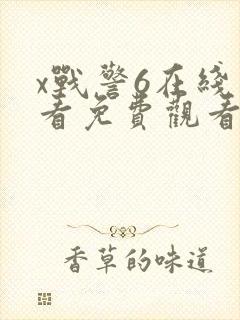 x戰警6在綫
看免費觀看
香草的味道